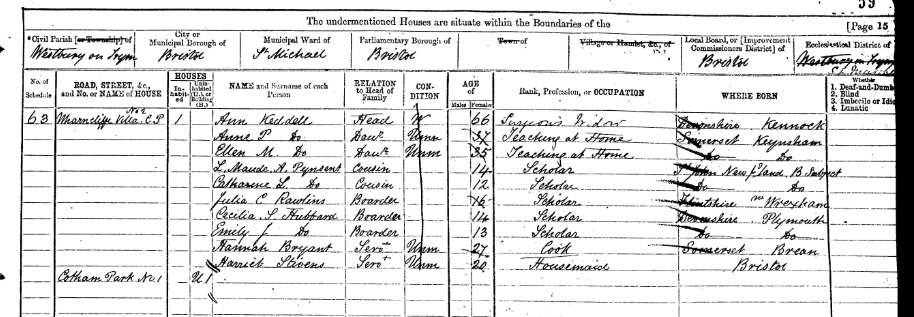 59
The undermentioned Houses are situate within the Boundaries of the
[Page 15
Civil Parish [or Township] of
City or Municipal Borough of
Municipal Ward of
Parliamentary Borough of
Town of
Village or Hamlet, &c., of
Local Board, or [Improvement Commissioners District] of
Ecclesiastical District of
Westbury on Trym
Bristol
St Michael
Bristol
Bristol
Westbury on Trym
No. of Schedule
ROAD, STREET, &c., and No. or NAME of HOUSE
HOUSES
Inhabited
Uninhabited (U.), or Building (B.)
NAME and Surname of each Person
RELATION to Head of Family
CONDITION
AGE of
Males
Females
Rank, Profession, or OCCUPATION
WHERE BORN
Whether
1. Deaf-and-Dumb
2. Blind
3. Imbecile or Idiot
4. Lunatic
63 Villa C.P 1 Ann Keddell Head W 66 Surgeons Widow Devonshire Kennock
Anne P Do Daur Unm 37 Teaching at Home Somerset Keynsham
Ellen M. Do Daur Unm 35 Teaching at Home Do Do
L. Maude A. Pynsent Cousin 14 Scholar St John Newfland B Subject
Catharine L. Do Cousin 12 Scholar Do Do
Julia C Rawlins Boarder 16 Scholar Flintshire nr Wrexham
Cecilia S. Hubbard Boarder 14 Scholar Devonshire Plymouth
Emily J Do Boarder 13 Scholar Do Do
Hannah Bryant Servt Unm 27 Cook Somerset Brean
Harriet Stevens Servt Unm 20 Housemaid Bristol
Cotham Park No 1 U1